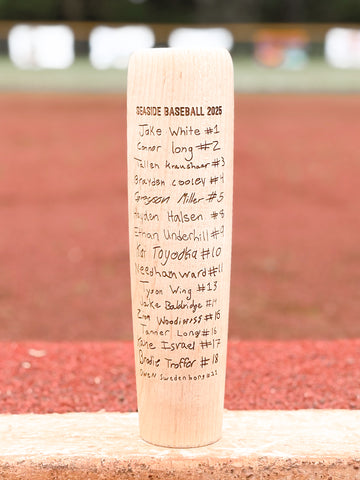 SEASIDE BASEBALL 2025
Jake White #1
Connor long #2
Tallen Kraushaar #3
Brayden cooley #4
Greyson Miller #5
Hayden Halsen #8
Ethan Underhill #9
Kai Toyooka #10
Needham ward #11
Tyson Wing #13
Jake Baldridge #14
Zinn Woodiwiss #15
Tanner Long #16
Kane Israel #17
Brodie Troffer #18
Owen Swedenborg #22